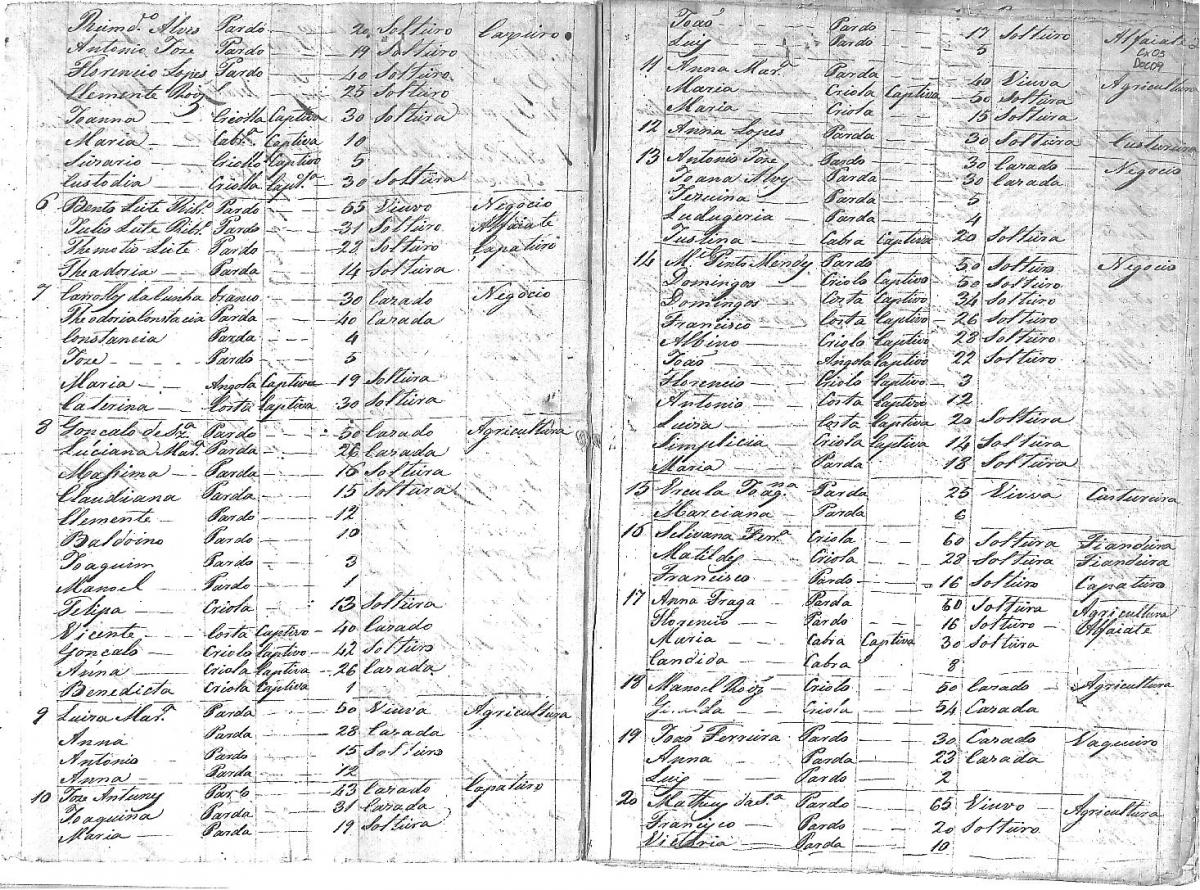 Raim.do Alves Pardo 20 Solturo Capturo
Antonio Joze Pardo 19 Solturo
Florencio Lopes Pardo 40 Solturo
Clemente Roiz Pardo 25 Solturo
Joanna Criolla Captiva 30 Soltura
Maria Cabr.a Captiva 10
Criollo Captivo 5
Custodia Criolla Capt.a 30 Soltura
6 Bento Leite Ribr.o Pardo 65 Viuvo Negocio
Julio Leite Ribr.o Pardo 31 Solturo Alfaiate
Themotio Leite Pardo 22 Solturo Capaturo
Theadoria Parda 14 Soltura
7 da Cunha branco 30 Cazado Negocio
Theodoria Constacia Parda 40 Cazada
Constancia Parda 4
Joze Pardo 5
Maria Angola Captiva 19 Soltura
Caterina Costa Captiva 30 Soltura
8 Gonçalo de Sz.a Pardo 50 Cazado Agricultura
Lúciana Mar.a Parda 26 Cazada
Maxima Parda 16 Soltura
Claudiana Parda 15 Soltura
Clemente Pardo 12
Baldoino Pardo 10
Joaquim Pardo 3
Manoel Pardo 1
Felipa Criola 13 Soltura
Vicente Costa Captivo 40 Cazado
Gonçalo Criolo Captivo 42 Solturo
Anna Criola Captiva 26 Cazada
Benedicta Criola Captiva 1
9 Luiza Mar.a Parda 60 Viuva Agricultura
Anna Parda 28 Cazada
Antonio Pardo 15 Solturo
Anna Parda 12
10 Joze Antuny Pardo 43 Cazado Capaturo
Joaquina Parda 31 Cazada
Maria Parda 19 Soltura
João Pardo 17 Solturo Alfaiate
Luiz Pardo 5
Cx 03
Doc 09
11 Anna Mar.a Parda 40 Viuva Agricultura
Maria Criola Captiva 50 Soltura
Maria Criola 15 Soltura
12 Anna Lopes Parda 30 Soltura Custureira
13 Antonio Joze Pardo 30 Cazado Negocio
Joana Alvy Parda 30 Cazada
Parda 5
Ludugeria Parda 4
Justina Cabra Captiva 20 Soltura
14 M.el Pinto Mendy Pardo 50 Solturo Negocio
Domingos Criolo Captivo 50 Solturo
Domingos Costa Captivo 34 Solturo
Francisco Costa Captivo 26 Solturo
Albino Criolo Captivo 28 Solturo
João Angola Captivo 22 Solturo
Florencio Criolo Captivo 3
Antonio Costa Captivo 12
Luiza Costa Captiva 20 Soltura
Simplicia Criola Captiva 14 Soltura
Maria Parda 18 Soltura
15 Urcula Joaq.na Parda 25 Viuva Custureira
Marciana Parda 6
16 Selivana Ferr.a Criola 60 Soltura Fiandeira
Matildy Criola 28 Soltura Fiandeira
Francisco Pardo 16 Solturo Capaturo
17 Anna Fraga Parda 60 Soltura Agricultura
Florencio Pardo 16 Solturo Alfaiate
Maria Cabra Captiva 30 Soltura
Candida Cabra 8
18 Manoel Roiz Criolo 50 Cazado Agricultura
Criola 54 Cazada
19 João Ferreira Pardo 30 Cazado Vaqueiro
Anna Parda 23 Cazada
Luiz Pardo 2
20 Matheuy da S.a Pardo 65 Viuvo Agricultura
Francisco Pardo 20 Solturo
Victoria Parda 10